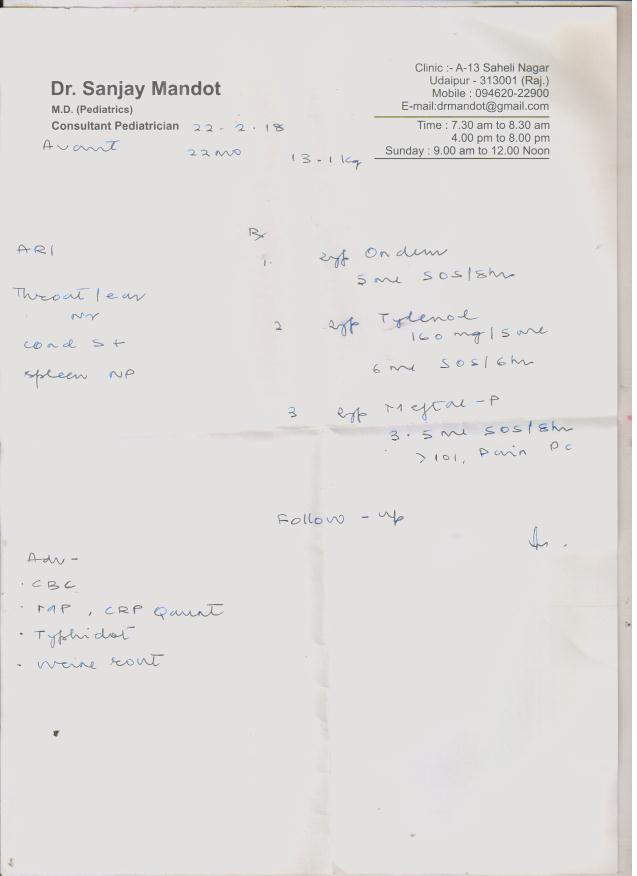 Dr. Sanjay Mandot
M.D. (Pediatrics)
Consultant Pediatrician
Clinic :- A-13 Saheli Nagar
Udaipur - 313001 (Raj.)
Mobile : 094620-22900
E-mail:drmandot@gmail.com
Time : 7.30 am to 8.30 am
4.00 pm to 8.00 pm
Sunday : 9.00 am to 12.00 Noon
22-2-18
Avant
22 mo
13-1 kg
ARI
Throat/ear
NR
cond S+
spleen NP
Rx
1. syp Ondem
5 ml SOS/8hr
2 syp Tylenol
160 mg/5 ml
6 ml SOS/6hr
3 syp Meftal-P
3.5 ml SOS/8hr
>101, Pain PC
Follow-up
Adv-
· CBC
· MP, CRP Quant
· Typhidot
- urine rout